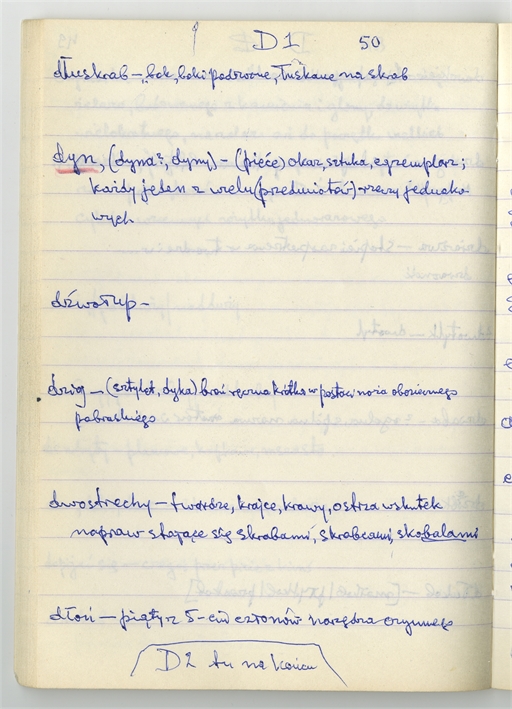 D1 50
dłuskrab – bok, boki podrwone, łuskane na skrab
dyn, (dyna?, dyny) – (pięće) okaz, sztuka, egzemplarz;
każdy jeden z wielu (przedmiotów) rzeczy jednako-
wych
dźwotup –
dzig – (sztylet, dyka) broń ręczna krótka w postaci noża obosiecznego
dwostrechy – twardze, krajce, krawy, ostrza wskutek
napraw stające się skrabami, skrabcami, skobalami
dłoń – piąty z 5-ciu członów narzędza czynnego
D2 tu na końcu